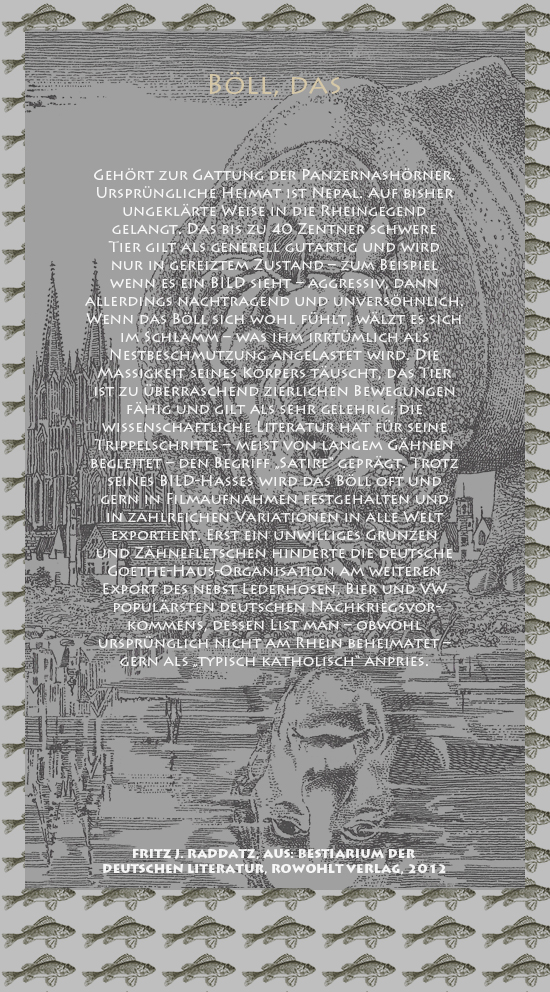 Böll, das
Gehört zur Gattung der Panzernashörner.
Ursprüngliche Heimat ist Nepal. Auf bisher
ungeklärte Weise in die Rheingegend
gelangt. Das bis zu 40 Zentner schwere
Tier gilt als generell gutartig und wird
nur in gereiztem Zustand – zum Beispiel
wenn es ein BILD sieht – aggressiv, dann
allerdings nachtragend und unversöhnlich.
Wenn das Böll sich wohl fühlt, wälzt es sich
im Schlamm – was ihm irrtümlich als
Nestbeschmutzung angelastet wird. Die
Massigkeit seines Körpers täuscht, das Tier
ist zu überraschend zierlichen Bewegungen
fähig und gilt als sehr gelehrig; die
wissenschaftliche Literatur hat für seine
Trippelschritte – meist von langem Gähnen
begleitet – den Begriff „Satire“ geprägt. Trotz
seines BILD-Hasses wird das Böll oft und
gern in Filmaufnahmen festgehalten und
in zahlreichen Variationen in alle Welt
exportiert. Erst ein unwilliges Grunzen
und Zähnefletschen hinderte die deutsche
Goethe-Haus-Organisation am weiteren
Export des nebst Lederhosen, Bier und VW
populärsten deutschen Nachkriegsvor-
kommens, dessen List man – obwohl
ursprünglich nicht am Rhein beheimatet –
gern als „typisch katholisch“ anpries.
Fritz J. Raddatz, aus: Bestiarium der
deutschen Literatur, Rowohlt Verlag, 2012